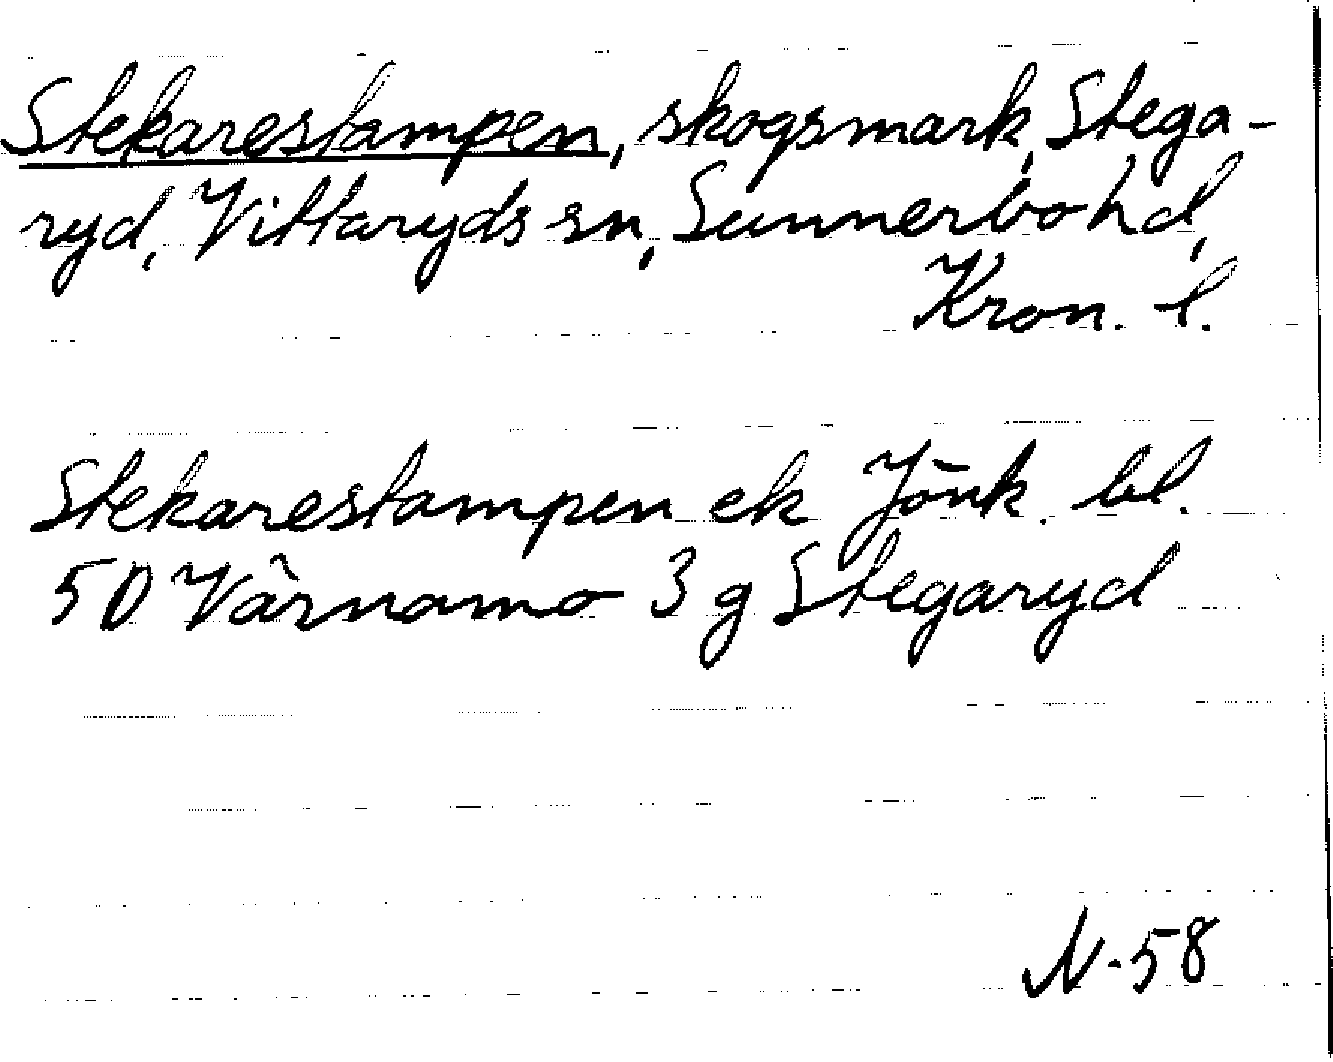 Stekarestampen, skogsmark, Stega-
ryd, Vittaryds sn, Sunnerbo hd,
Kron. l.
Stekarestampen ek Jönk. bl.
50 Värnamo 3 g Stegaryd
N-58